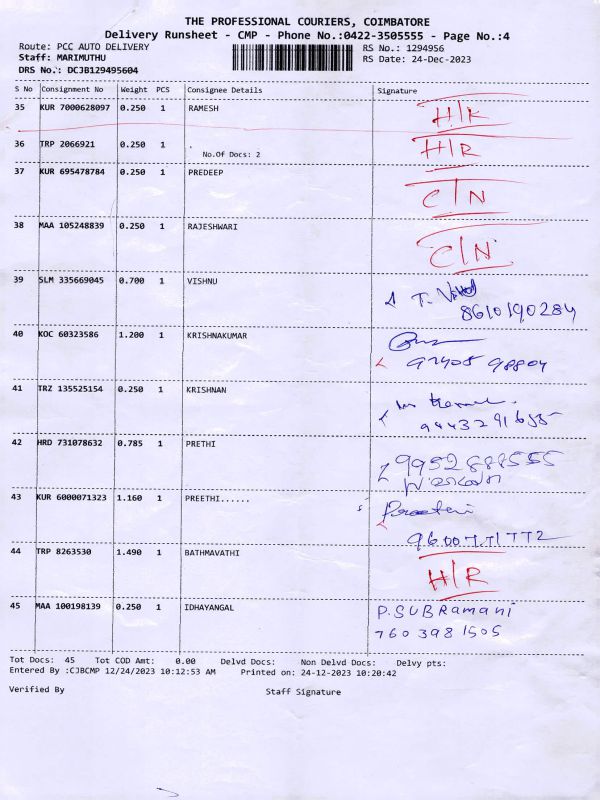 THE PROFESSIONAL COURIERS, COIMBATORE
Delivery Runsheet - CMP - Phone No.:0422-3505555 - Page No.:4
Route: PCC AUTO DELIVERY RS No.: 1294956
Staff: MARIMUTHU RS Date: 24-Dec-2023
DRS No.: DCJB129495604
S No Consignment No Weight PCS Consignee Details Signature
35 KUR 7000628097 0.250 1 RAMESH H/R
36 TRP 2066921 0.250 1 H/R
No.Of Docs: 2
37 KUR 695478784 0.250 1 PREDEEP C/N
38 MAA 105248839 0.250 1 RAJESHWARI C/N
39 SLM 335669045 0.700 1 VISHNU T.
8610190284
40 KOC 60323586 1.200 1 KRISHNAKUMAR
97905 98804
41 TRZ 135525154 0.250 1 KRISHNAN
42 HRD 731078632 0.785 1 PRETHI 9952888555
43 KUR 6000071323 1.160 1 PREETHI...... Preethi
9600771772
44 TRP 8263530 1.490 1 BATHMAVATHI H/R
45 MAA 100198139 0.250 1 IDHAYANGAL P.SUBRamani
760 398 1505
Tot Docs: 45 Tot COD Amt: 0.00 Delvd Docs: Non Delvd Docs: Delvy pts:
Entered By :CJBCMP 12/24/2023 10:12:53 AM Printed on: 24-12-2023 10:20:42
Verified By Staff Signature